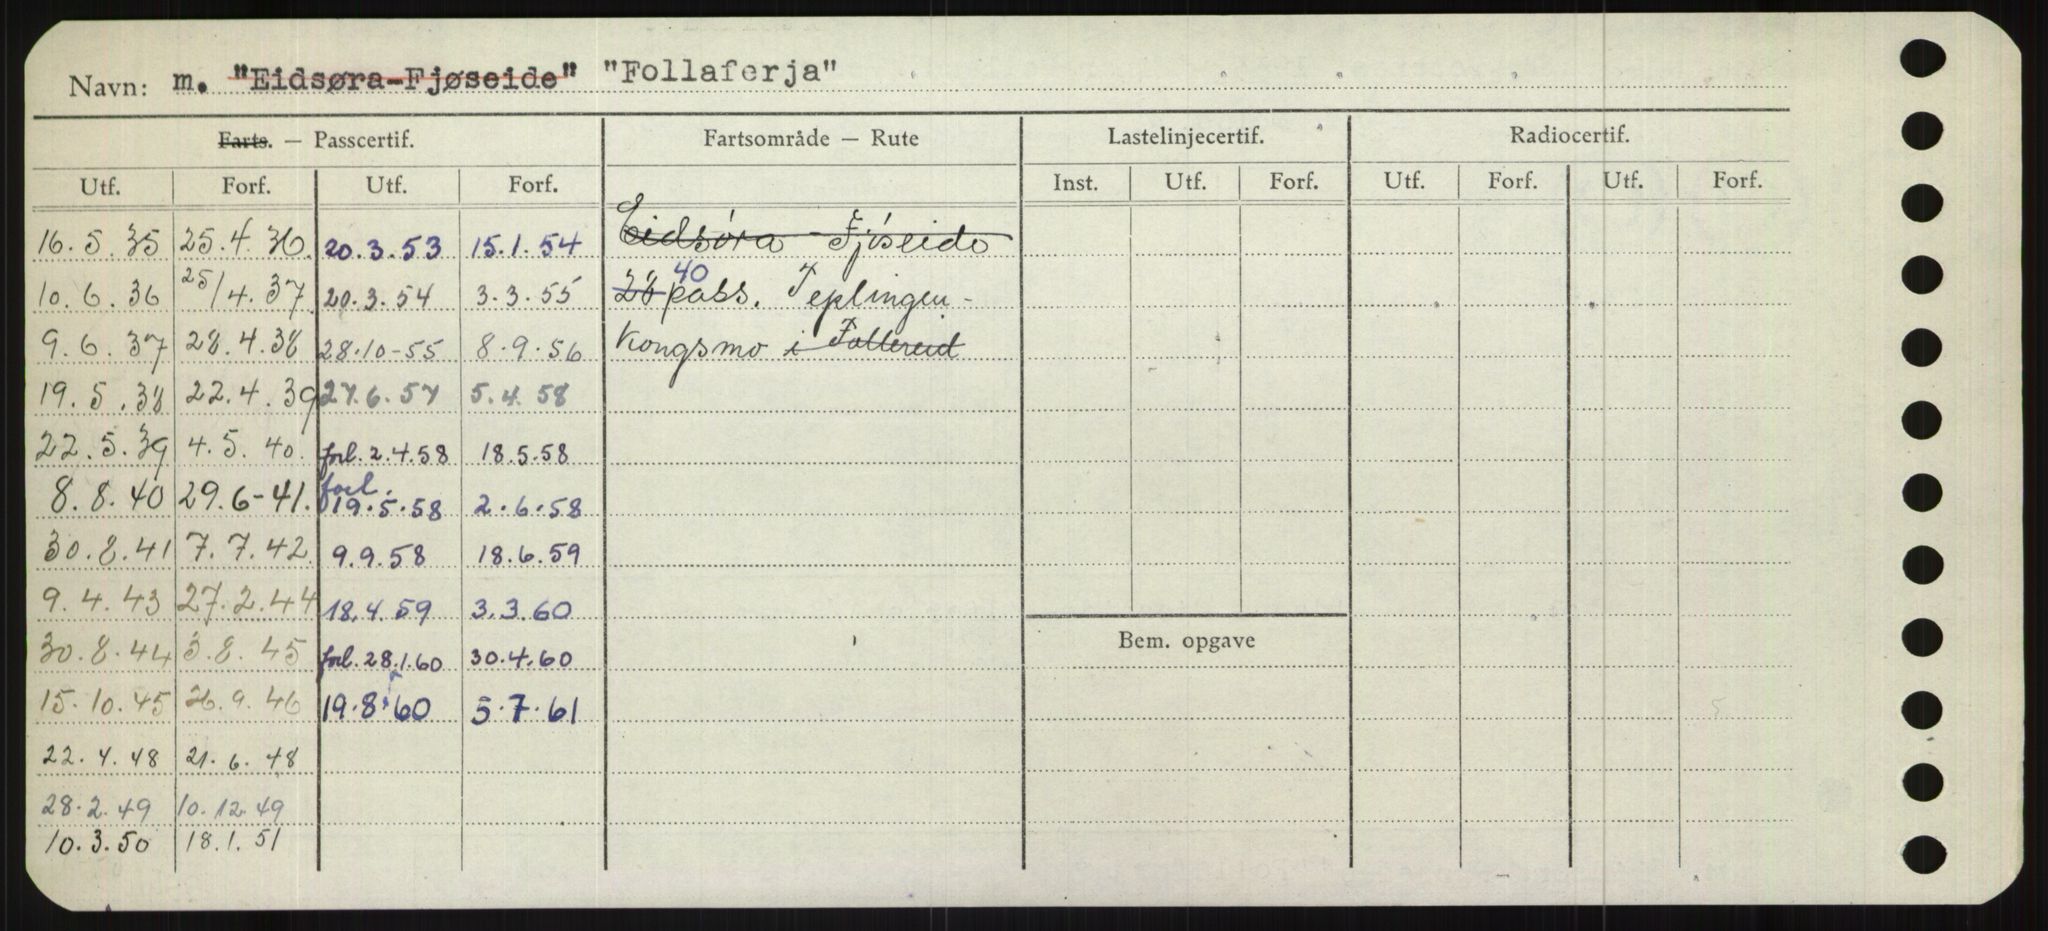 Navn: m. "Eidsøra-Fjøseide" "Follaferja"
Farts. — Passcertif. Fartsområde — Rute Lastelinjecertif. Radiocertif.
Utf. Forf. Utf. Forf. Inst. Utf. Forf. Utf. Forf. Utf. Forf.
16.5.35 25.4.36. 20.3.53 15.1.54 Eidsøra - Fjøseide
10.6.36 25/4.37 20.3.54 3.3.55 28 40 pass. Teplingen -
9.6.37 28.4.38 28.10-55 8.9.56 Kongsmo i Follereid
19.5.38 22.4.39 27.6.57 5.4.58
22.5.39 4.5.40. forl. 2.4.58 18.5.58
8.8.40 29.6-41. forl. 19.5.58 2.6.58
30.8.41 7.7.42. 9.9.58 18.6.59
9.4.43 27.2.44 18.4.59 3.3.60
30.8.44 3.8.45 forl. 28.1.60 30.4.60
Bem. opgave
15.10.45 26.9.46 19.8.60 5.7.61
22.4.48 21.6.48
28.2.49 10.12.49
10.3.50 18.1.51